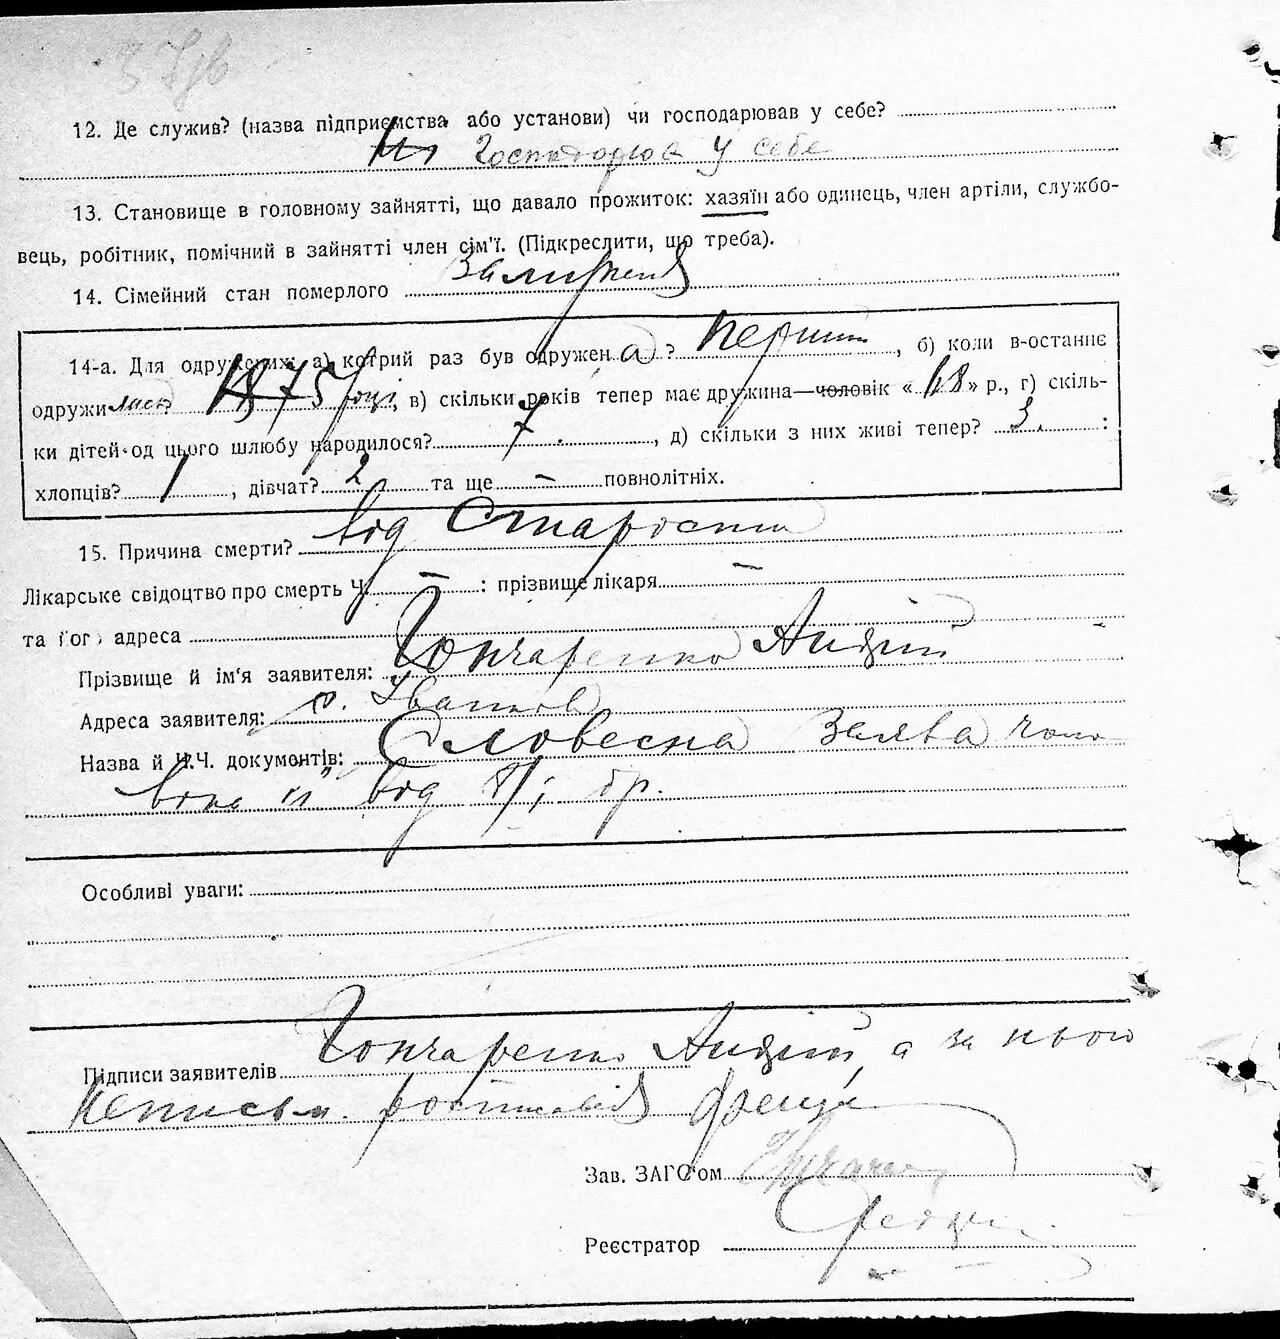 12. Де служив? (назва підприємства або установи) чи господарював у себе?
господарював у себе
13. Становище в головному зайнятті, що давало прожиток: хазяїн або одинець, член артіли, службо-
вець, робітник, помічний в зайнятті член сім'ї. (Підкреслити, що треба).
14. Сімейний стан померлого
14-а. Для одружених: а) котрий раз був одружен а? перший, б) коли в-останнє
одружилась 1875 році, в) скільки років тепер має дружина—чоловік « » р., г) скіль-
ки дітей од цього шлюбу народилося? 7. , д) скільки з них живі тепер? 3. :
хлопців? 1, дівчат? 2 та ще – повнолітніх.
15. Причина смерти? від старости
Лікарське свідоцтво про смерть Ч. – : прізвище лікаря –
та його адреса –
Прізвище й ім'я заявителя: Гончаренко Андрій
Адреса заявителя: с. Іванков
Назва й Ч.Ч. документів: Словесна заява чоло
віка від
Особливі уваги:
Підписи заявителів Гончаренко Андрій, а за нього
неписьм. розписався
Зав. ЗАГС'ом
Реєстратор